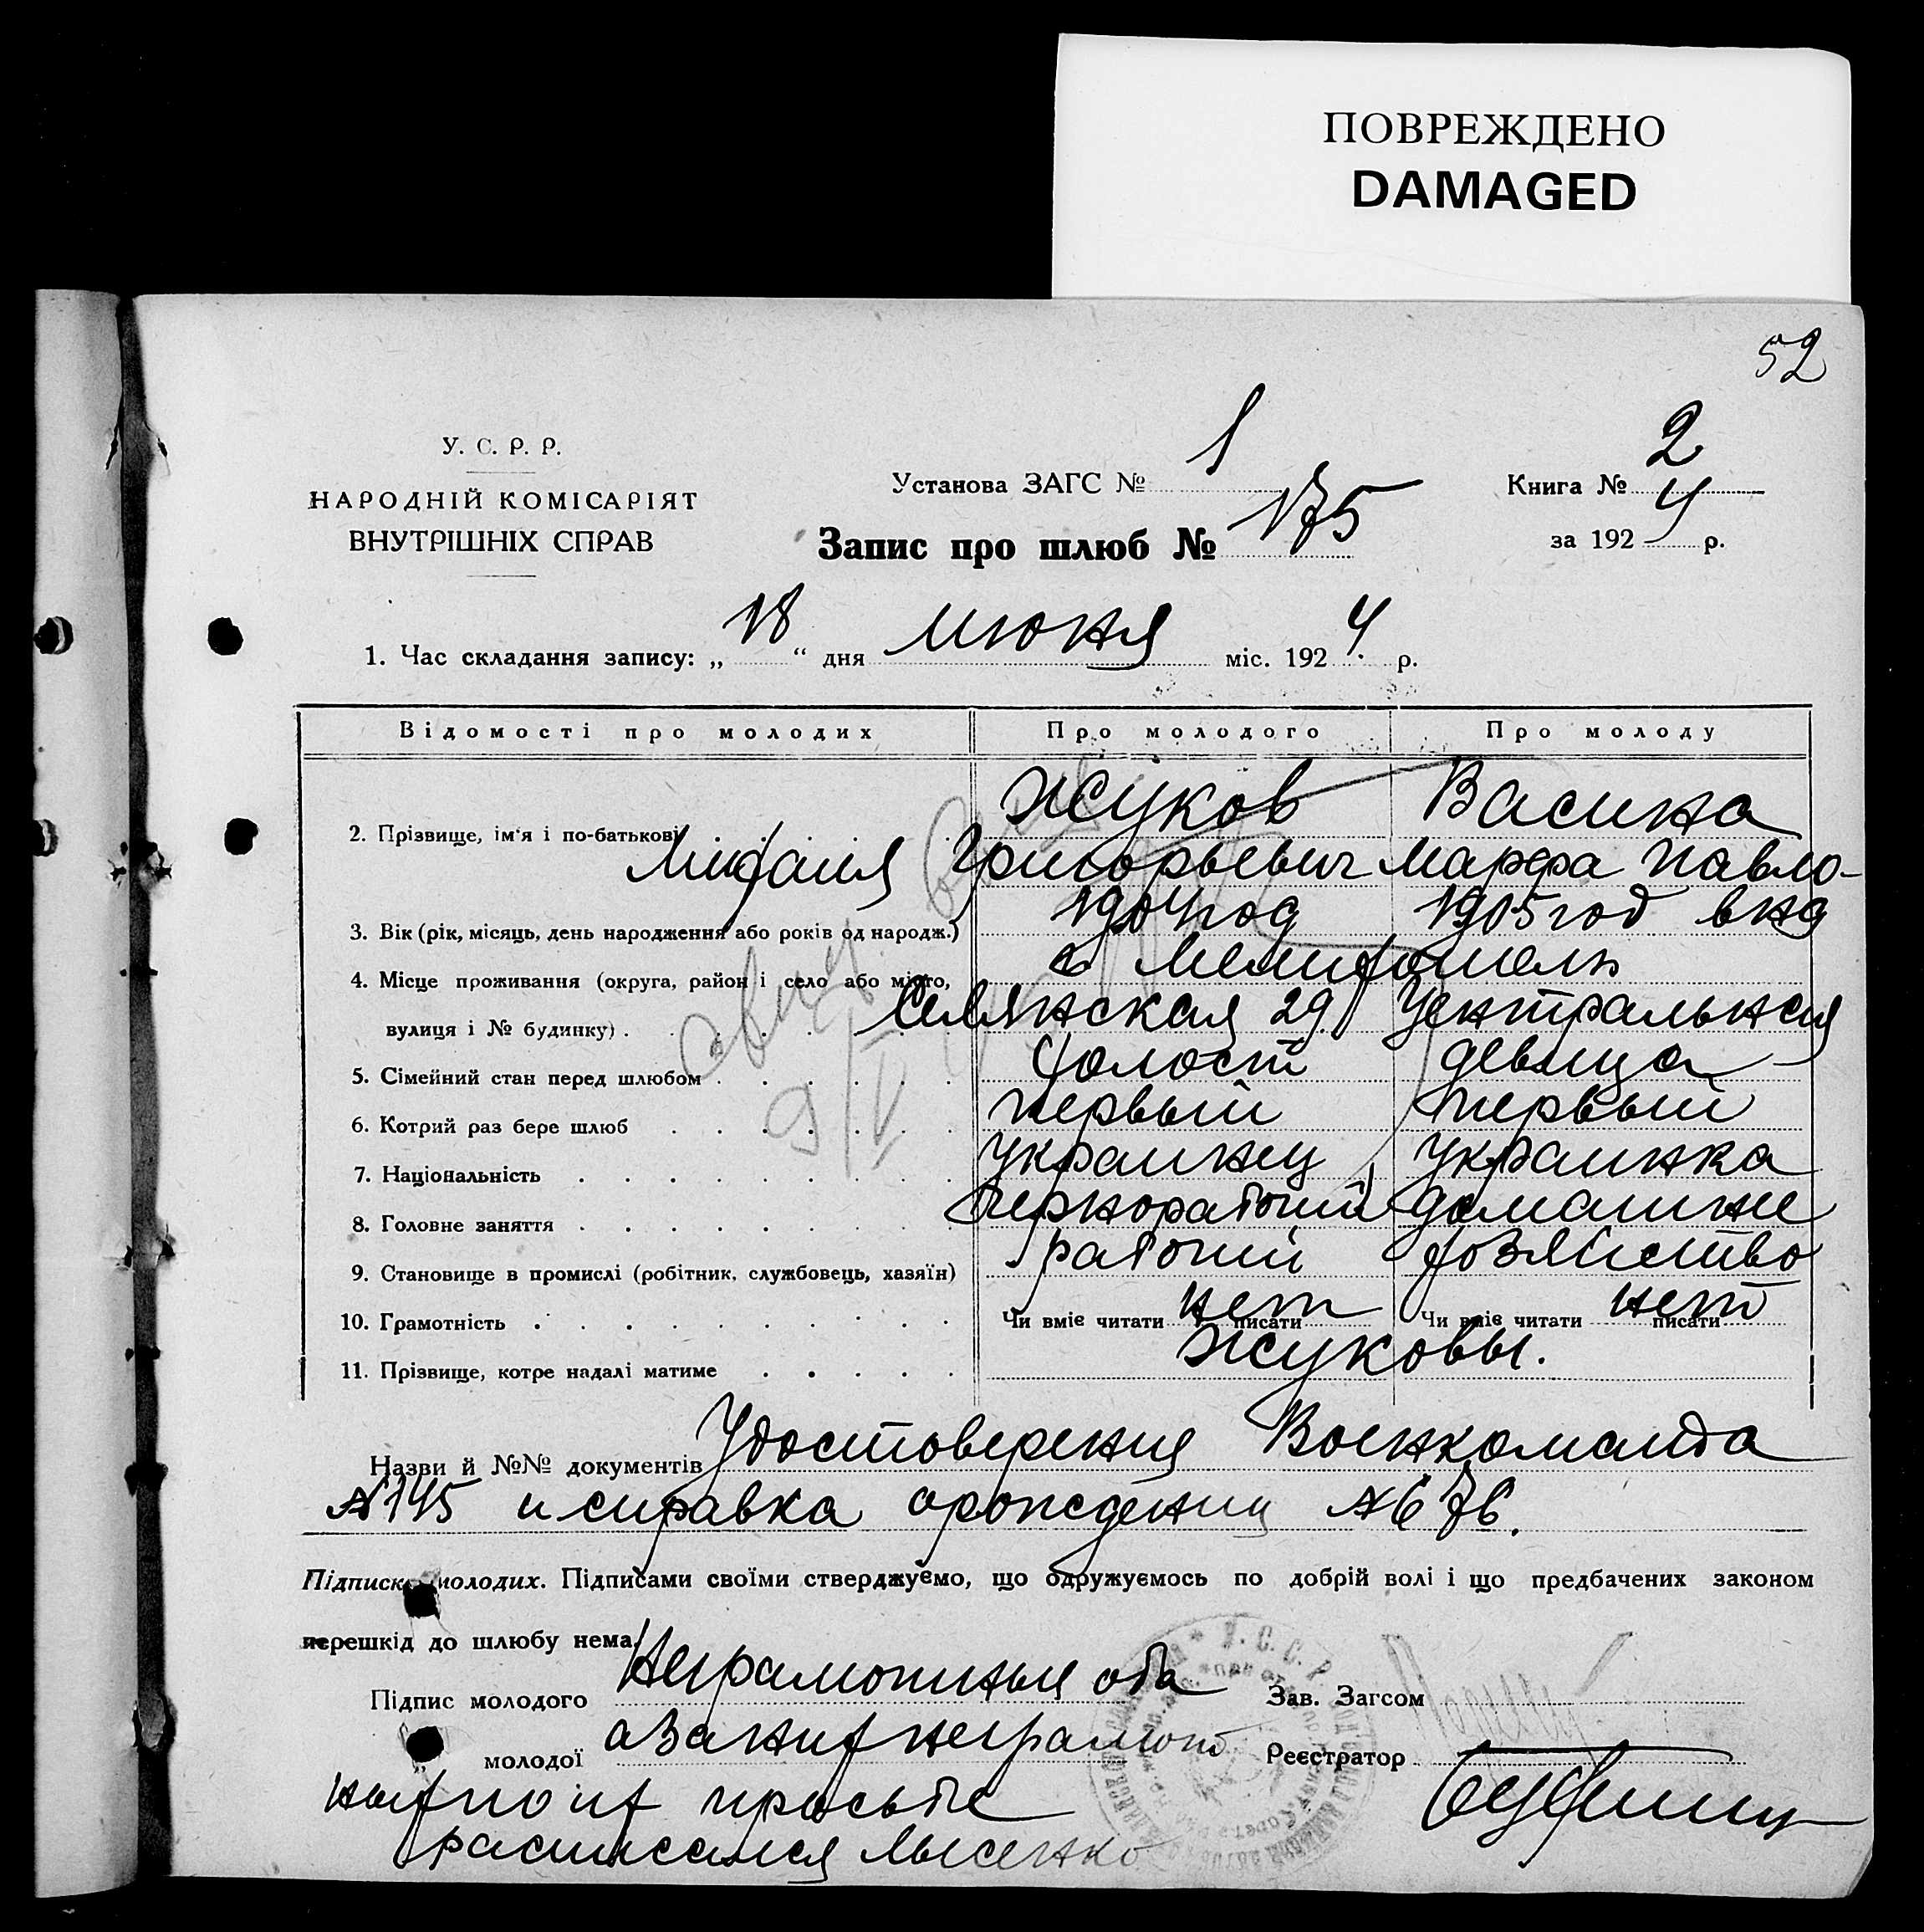 ПОВРЕЖДЕНО
DAMAGED
52
У. С. Р. Р.
НАРОДНІЙ КОМІСАРІЯТ
ВНУТРІШНІХ СПРАВ
Установа ЗАГС № 1
Книга № 2
Запис про шлюб № 175
за 1924 р.
1. Час складання запису: „18“ дня июня міс. 1924. р.
Відомості про молодих Про молодого Про молоду
2. Прізвище, ім'я і по-батькові Жуков Васина
Михаил Григорьевич Марфа Павло-
3. Вік (рік, місяць, день народження або років од народж.) 1904 год 1905 год вна
4. Місце проживання (округа, район і село або місто, г. Мелитополь
вулиця і № будинку) Селянская 29 Центральная
5. Сімейний стан перед шлюбом холост девица
6. Котрий раз бере шлюб первый первый
7. Національність украинец украинка
8. Головне заняття чернорабочий домашнее
9. Становище в промислі (робітник, службовець, хазяїн) рабочий хозяйство
10. Грамотність Чи вміє читати писати нет Чи вміє читати писати нет
11. Прізвище, котре надалі матиме Жуковы.
Назви й №№ документів Удостоверения Военкомата
№ 145 и справка о рождении № 676.
Підписка молодих. Підписами своїми стверджуємо, що одружуємось по добрій волі і що предбачених законом
перешкід до шлюбу нема.
Підпис молодого Неграмотныя оба Зав. Загсом
молодої а за них неграмот Реєстратор
ных по их просьбе
расписался Лысенко